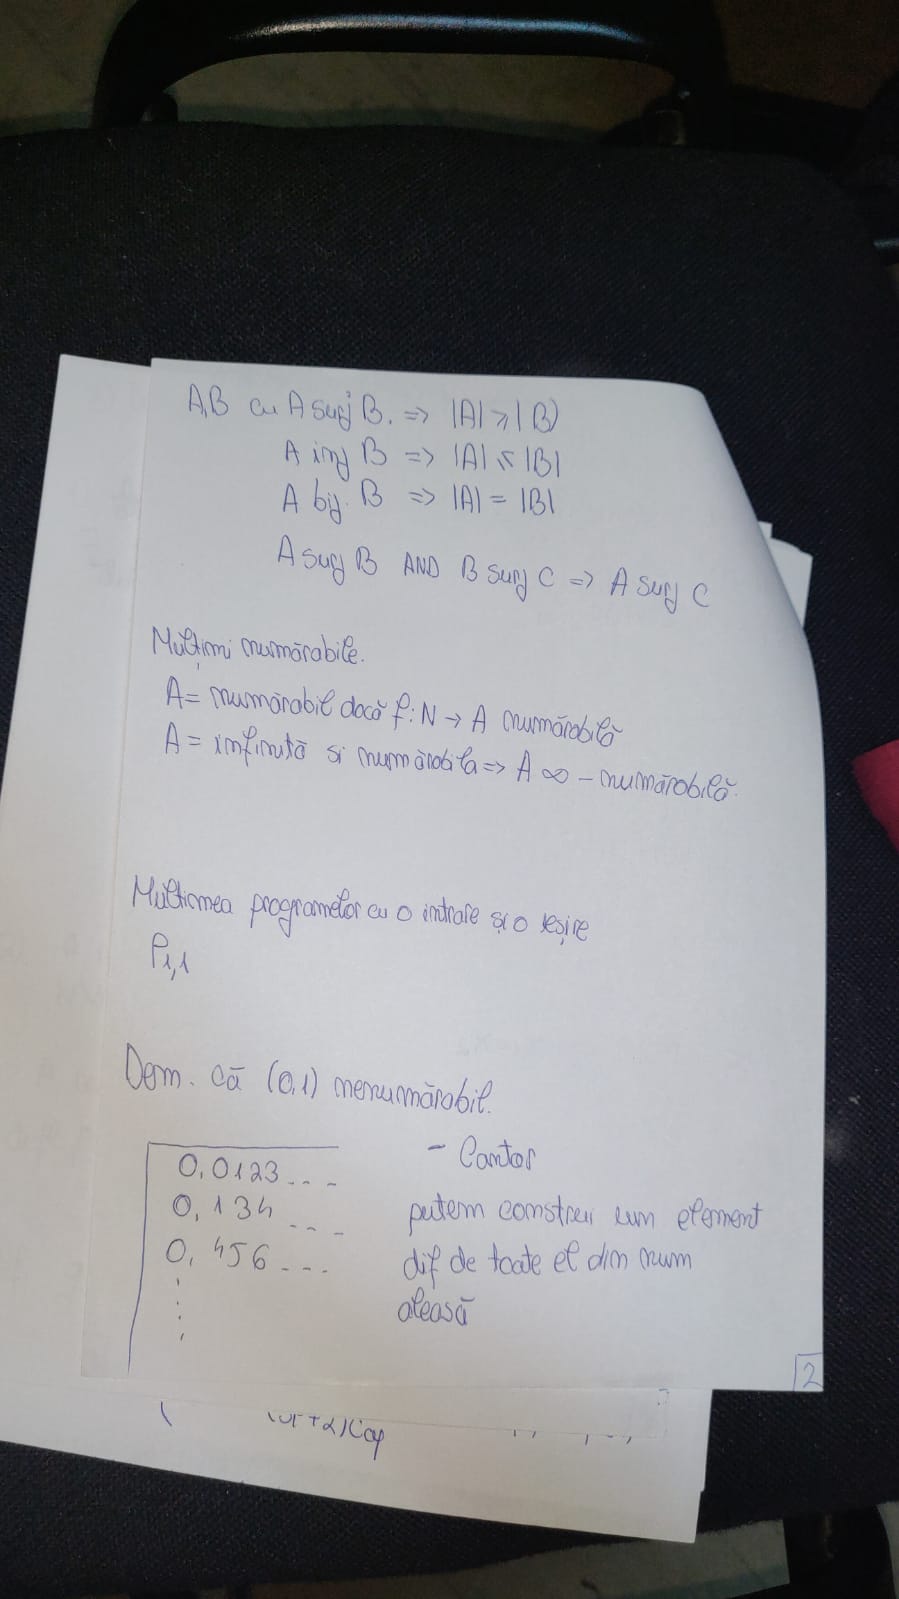 A,B cu A surj B. => |A| ⩾ |B|
A inj B => |A| ⩽ |B|
A bij B => |A| = |B|
A surj B AND B surj C => A surj C
Mulțimi numărabile.
A = numărabil dacă f: N → A numărabilă
A = infinită si numărabila => A ∞ - numărabilă.
Multimea programelor cu o intrare și o ieșire
P1,1
Dem. că (0,1) nenumărabil.
- Cantor
0,0123...
0,134...
0,456...
putem construi un element
dif de toate el din num
aleasă
2